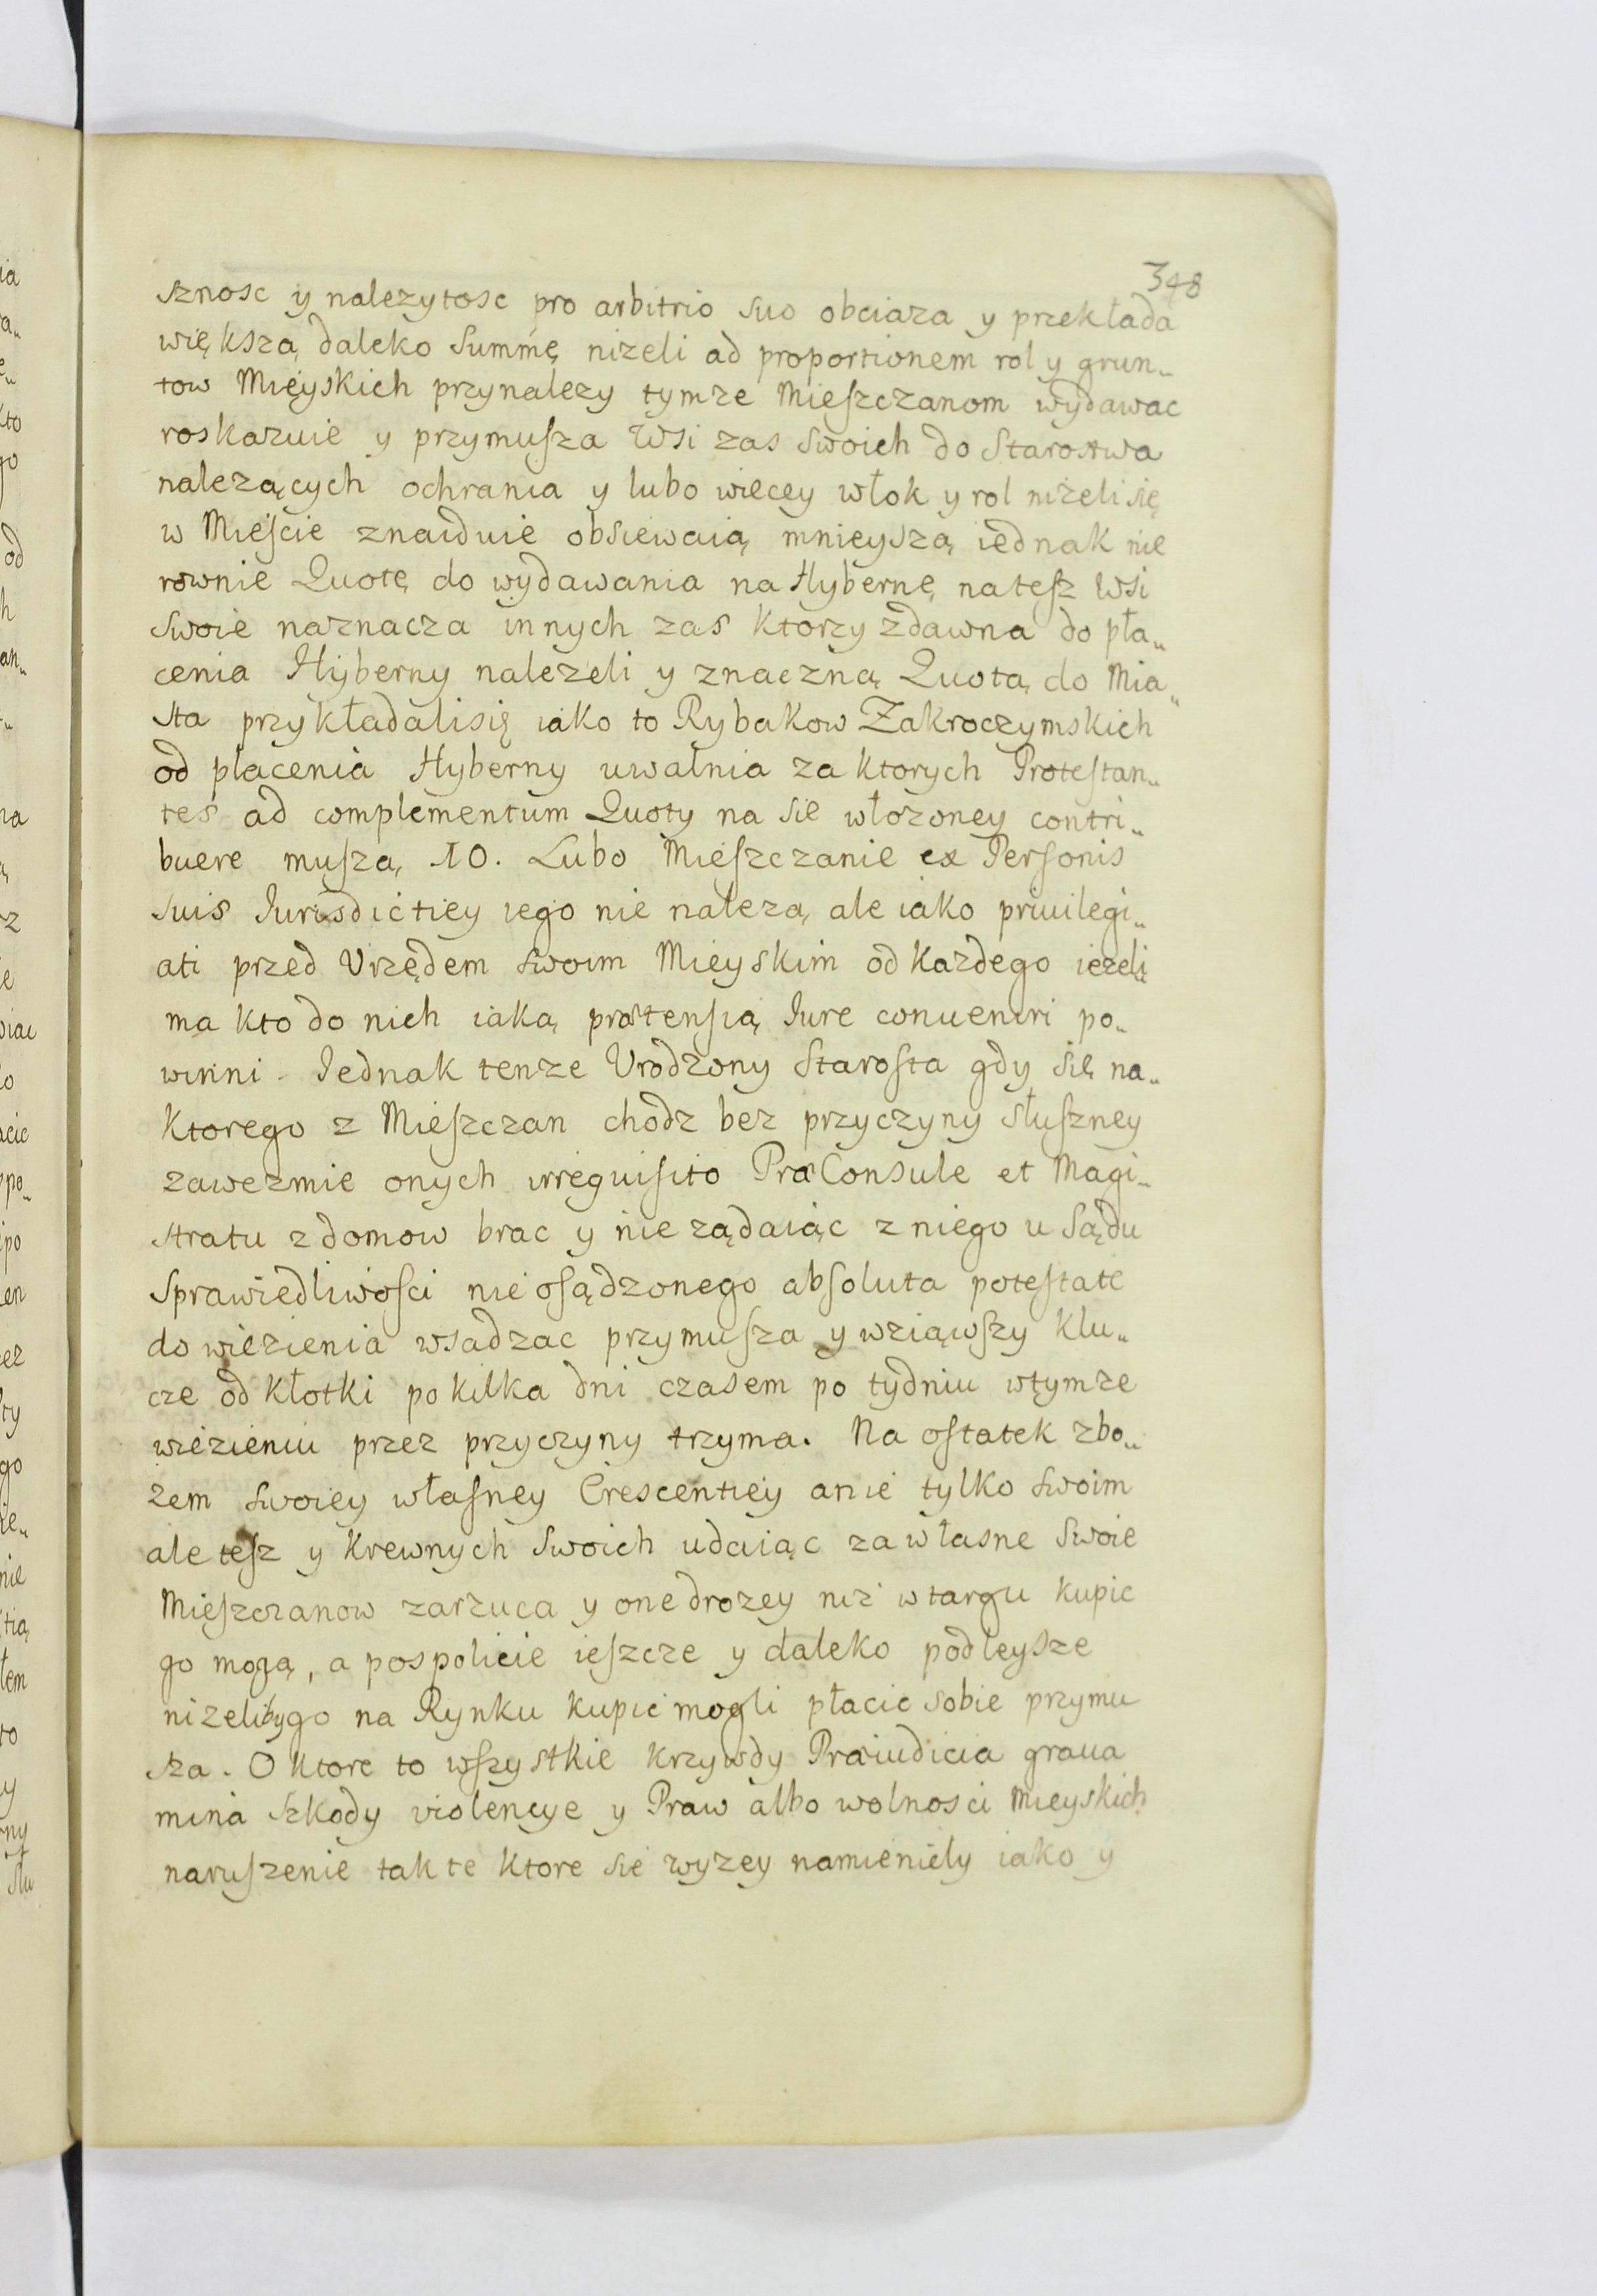 348
sznosc y nalezytosc pro arbitrio suo obciaza y przekłada
większą daleko Summę nizeli ad proportionem rol y grun„
tow Mieyskich przynalezy tymze Mieszczanom wydawac
roskazuie y przymusza Wsi zas swoich do Starostwa
nalezących ochrania y lubo wiecey włok y rol nizeli się
w Mieście znaiduie obsiewaią mnieyszą iednak nie
rownie Quotę do wydawania na Hybernę na tesz Wsi
swoie naznacza innych zas Ktorzy zdawna do pła„
cenia Hyberny nalezeli y znaczną Quotą do Mia„
sta przykładali się iako to Rybakow Zakroczymskich
od płacenia Hyberny uwalnia za ktorych Protestan„
tes ad complementum Quoty na sie włozoney contri„
buere muszą, 10. Lubo Mieszczanie ex Personis
suis Jurisdictiey iego nie nalezą, ale iako priuilegi„
ati przed Vrzędem swoim Mieyskim od Kazdego iezeli
ma kto do nich iaką prætensią Jure conueniri po„
winni. Jednak tenze Vrodzony Starosta gdy się na„
Ktorego z Mieszczan chodz bez przyczyny słuszney
zawezmie onych irrequisito PræConsule et Magi„
stratu z domow brac y nie ządaiąc z niego u Sądu
Sprawiedliwości nie osądzonego absoluta potestate
do wiezienia wsadzac przymusza y wziąwszy Klu„
cze od Kłotki po kilka dni czasem po tydniu w tymze
wiezieniu przez przyczyny trzyma. Na ostatek zbo„
zem swoiey własney Crescentiey a nie tylko swoim
ale tesz y Krewnych swoich udaiąc za własne swoie
Mieszczanow zarzuca y one drozey niz w targu kupic
go mogą, a pospolicie ieszcze y daleko podleysze
nizeliby go na Rynku kupic mogli płacic sobie przymu
sza. O Ktore to wszystkie Krzywdy Præiudicia graua
mina Szkody violencye y Praw albo wolnosci Mieyskich
naruszenie tak te Ktore sie wyzey namieniely iako y